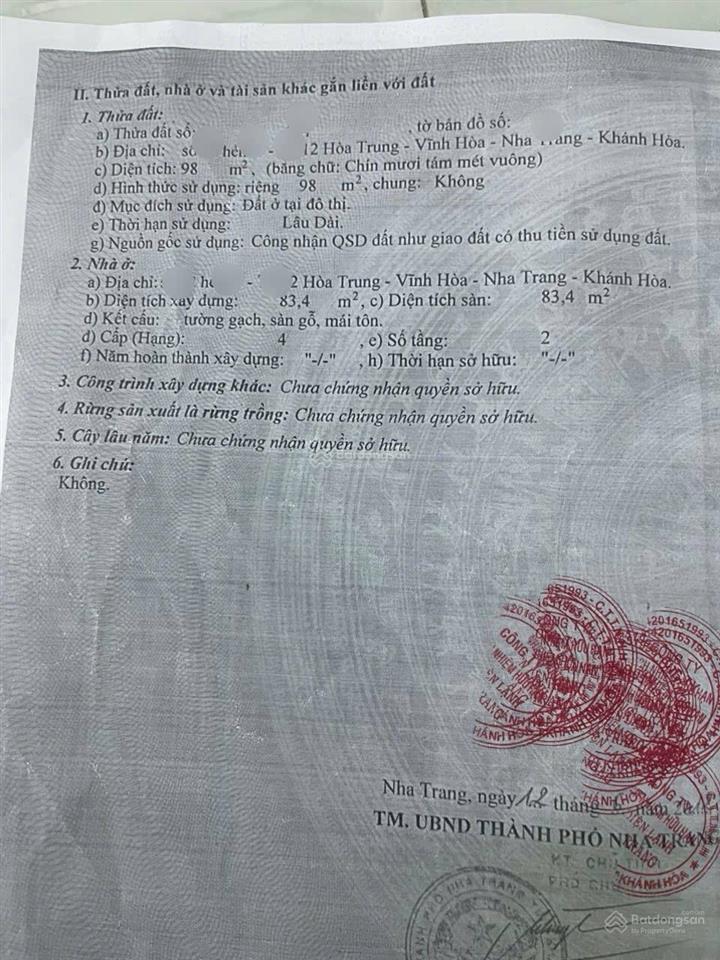 II. Thửa đất, nhà ở và tài sản khác gắn liền với đất
1. Thửa đất:
a) Thửa đất số: , tờ bản đồ số:
b) Địa chỉ: số hẻm - 12 Hòa Trung - Vĩnh Hòa - Nha Trang - Khánh Hòa.
c) Diện tích: 98 m², (bằng chữ: Chín mươi tám mét vuông)
d) Hình thức sử dụng: riêng 98 m², chung: Không
đ) Mục đích sử dụng: Đất ở tại đô thị.
e) Thời hạn sử dụng: Lâu Dài.
g) Nguồn gốc sử dụng: Công nhận QSD đất như giao đất có thu tiền sử dụng đất.
2. Nhà ở:
a) Địa chỉ: - 2 Hòa Trung - Vĩnh Hòa - Nha Trang - Khánh Hòa.
b) Diện tích xây dựng: 83,4 m², c) Diện tích sàn: 83,4 m²
d) Kết cấu: tường gạch, sàn gỗ, mái tôn.
đ) Cấp (Hạng): 4 , e) Số tầng: 2
f) Năm hoàn thành xây dựng: "-/-" , h) Thời hạn sở hữu: "-/-"
3. Công trình xây dựng khác: Chưa chứng nhận quyền sở hữu.
4. Rừng sản xuất là rừng trồng: Chưa chứng nhận quyền sở hữu.
5. Cây lâu năm: Chưa chứng nhận quyền sở hữu.
6. Ghi chú:
Không.
Batdongsan
4201651993 - C.T.T.
CÔNG TY
KHÁNH HÒA
Nha Trang, ngày 12 tháng năm
TM. UBND THÀNH PHỐ NHA TRANG
KT. CHỦ TỊCH
Batdongsan
by PropertyGuru